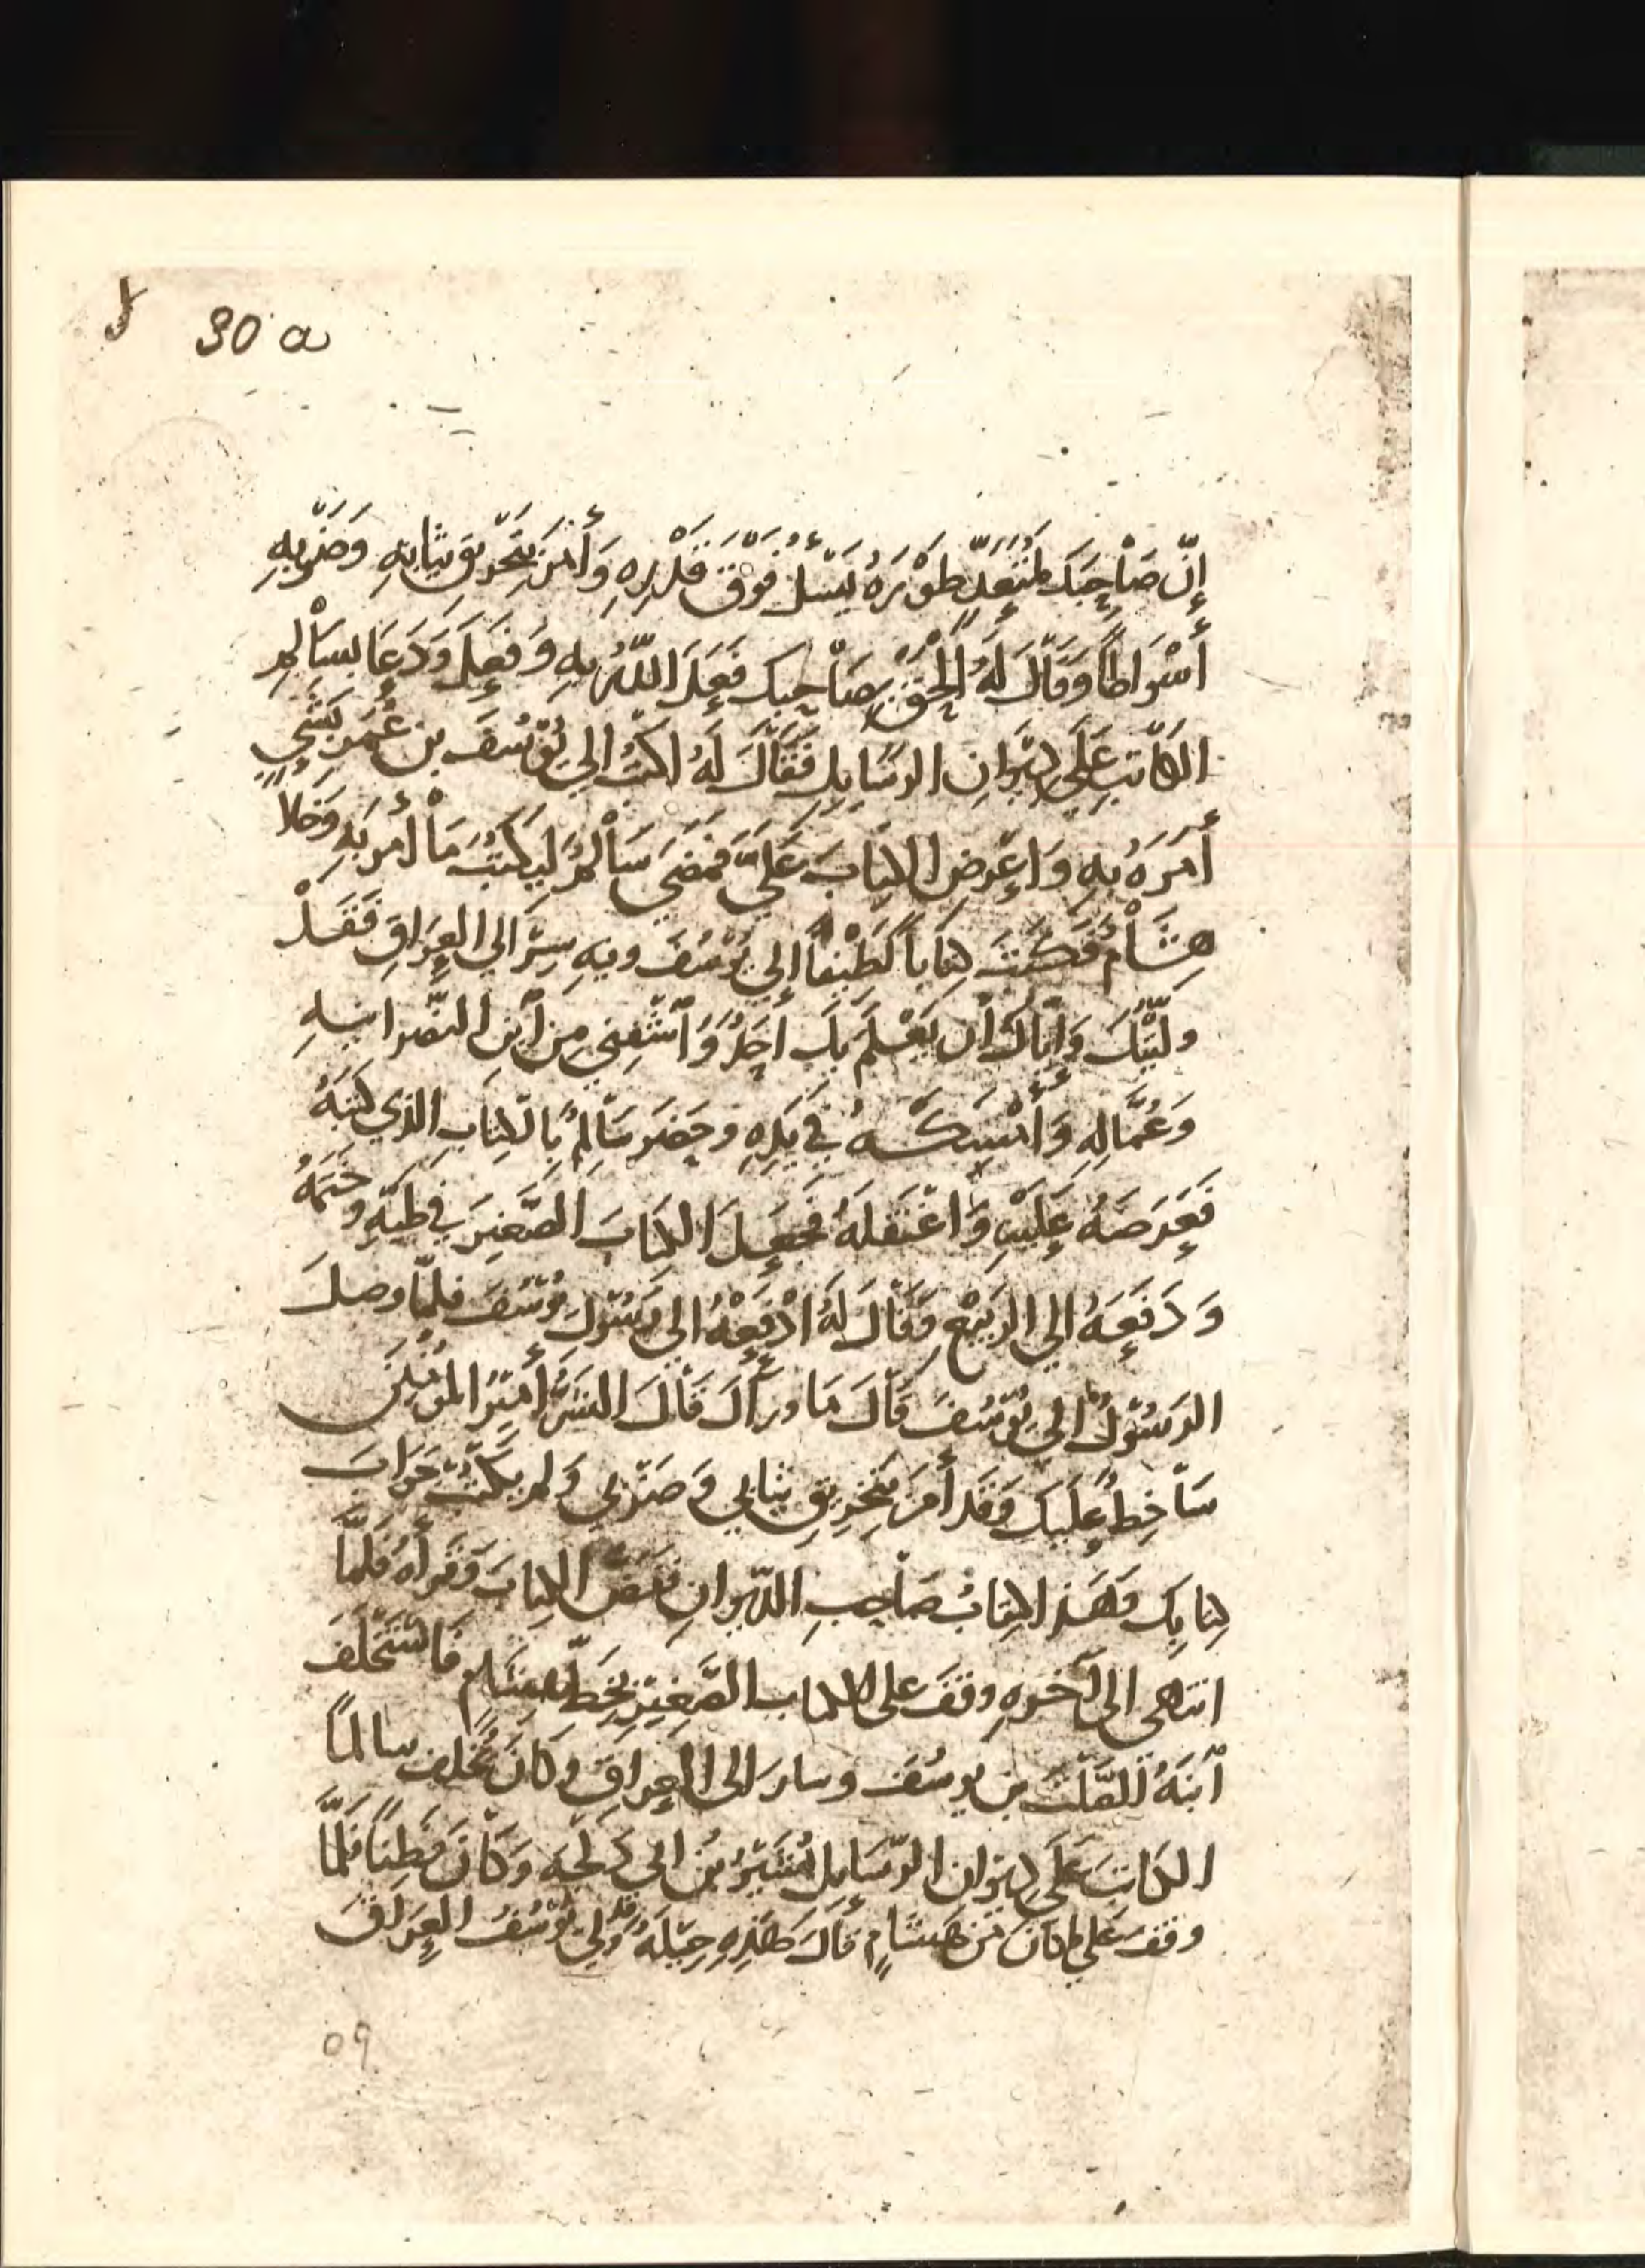 30 a
إِنّ صَاْحِبَكَ لَمُتَعَدٍّ طَوْرَهُ يَسْئَلُ فَوْقَ قَدْرِهِ وَأَمَرَ بِتَخْرِيقِ ثِيَابِهِ وَضَرْبِهِ
أَسْوَاطًا وَقَاْلَ لَهُ اِلْحَقْ بِصَاْحِبِكَ فَعَلَ اللّهُ بِهِ وَفَعَلَ وَدَعَا بِسَاْلِمِ
الكَاْتِبِ عَلَي دِيْوَانِ الرسَايِلِ فَقَاْلَ لَهُ اكتُبْ الي يُوْسُفَ بن عُمَرَ بِشَيٍ
أَمَرَهُ بِهِ وَاعْرِضِ الكِتَابَ عَلَيَّ فَمَضَي سَاْلِمُ لِيَكْتُبَ مَاْ أُمِرَ بِهِ وَخَلاَ
هِشَاْمُ فَكَتَبَ كِتَاباً لَطِيْفاً إِلي يُوْسُفَ وفيهِ سِرْ الي العِرَاقِ فَقَدْ
ولّيْتُكَ وَإِيّاكَ أَن يَعْلَمَ بِكَ أَحَدٌ وَٱشْفِني مِن ٱبنِ النّصْرانيهِ
وَعُمَّالِهِ وَأَمْسَكَهُ في يَدِهِ وحَضَرَ سَاْلِمُ بِالكِتَابِ الذي كَتَبَهُ
فَعَرَضَهُ عَلَيْهِ وَاغْتَفَلَهُ فَجَعَلَ الكِتَابَ الصَّغِيرَ في طَيّهِ وخَتَمَهُ
وَدَفَعَهُ الي الربَيْعِ وَقَاْلَ لَهُ ادْفَعْهُ الي رَسُوْلِ يُوْسُفَ فلمّا وصلَ
الرَسُوْلُ الي يُوْسُفَ قاْلَ مَا ورَأَكَ قاْلَ الشَرُّ أَمِيْرُ المُؤْمِنِيْنَ
سَاْخِطٌ عَلَيكَ وَقَد أَمَرَ بِتَخْرِيقِ ثيَابي وَضَرْبي وَلم يكتُبْ جَوَابَ
كِتَابِكَ وَهَذَا كِتَابُ صَاْحِبِ الدّيوانِ ففَضّ الكِتَابَ وَقرأَهُ فَلَمَّا
انتهى الى آخرهِ وقفَ على الكتاب الصَّغِيْرِ بِخَطِّ هِشَاْمِ فَاسْتَخْلَفَ
ٱبْنَهُ الصَّلْتَ بن يوسُفَ وسارَ الى العِراقِ وَكَانَ يُخْلِفُ سالماً
الكَاتِبَ عَلَي دِيْوانِ الرّسَايِلِ بُشَيْرُ بنُ ابي دَلْجَه وَكَاْنَ فَطِناً فَلَمَّا
وقفَ عَلَي ما كانَ مِن هِشَاْمٍ قاْلَ هَذِهِ حِيْلَهٌ وقد وُلِيَ يُوْسُفُ العِرَاقَ
٥٩